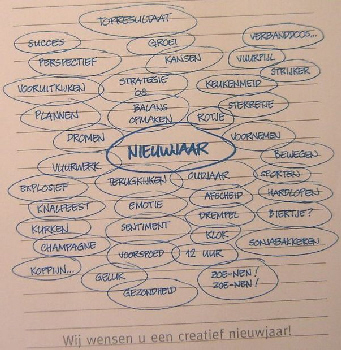 TOPRESULTAAT
SUCCES GROEI VERBANDDOOS...
PERSPECTIEF KANSEN VUURPIJL
STRIJKER
VOORUITKIJKEN STRATEGIE '08 KEUKENMEID
PLANNEN BALANS OPMAKEN ROTJE STERRETJE
DROMEN VOORNEMEN
NIEUWJAAR
VUURWERK BEWEGEN
EXPLOSIEF TERUGKIJKEN OUDJAAR SPORTEN
KNALFEEST EMOTIE AFSCHEID HARDLOPEN
KURKEN SENTIMENT DREMPEL BIERTJE?
KLOK
CHAMPAGNE VOORSPOED 12 UUR SONJABAKKEREN
KOPPIJN... GELUK ZOE-NEN!
ZOE-NEN!
GEZONDHEID
Wij wensen u een creatief nieuwjaar!